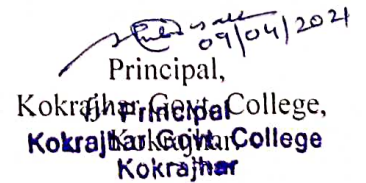 09/04/2021
Principal,
Kokrajhar Govt. College,
Kokrajhar.
Principal
Kokrajhar Govt. College
Kokrajhar